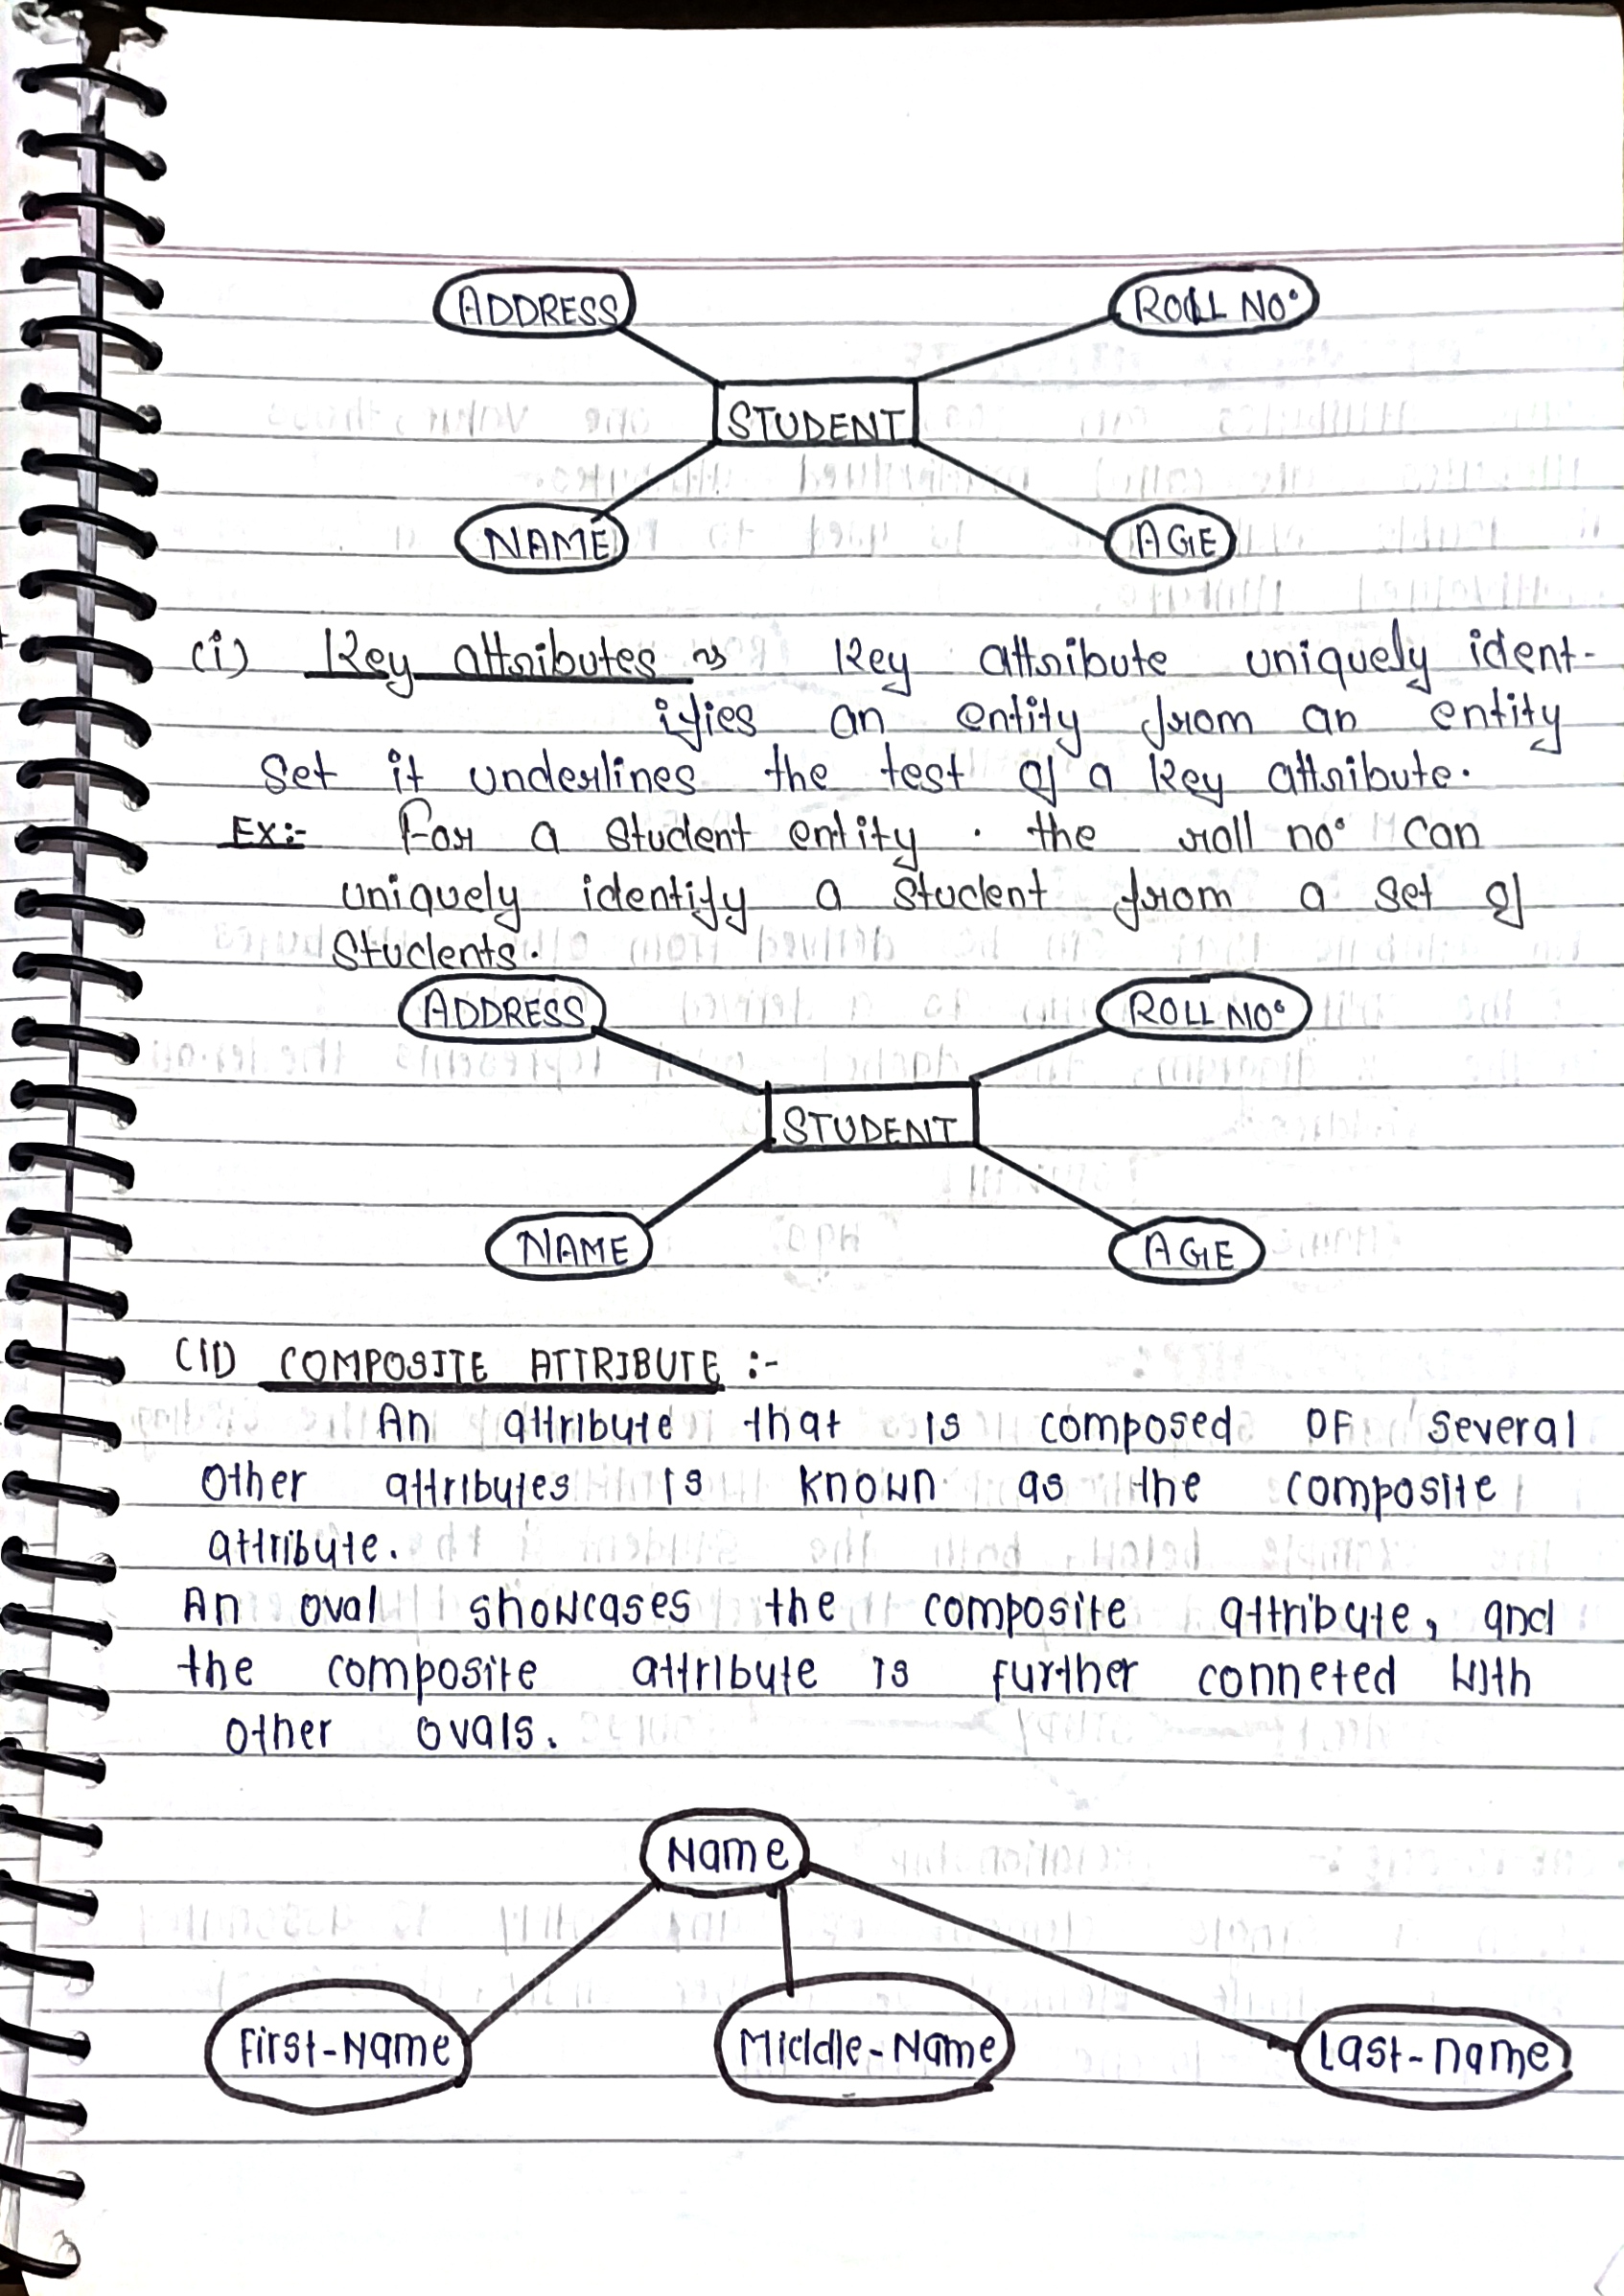 ADDRESS ROLL NO.
STUDENT
NAME AGE
(i) Key attributes ~> Key attribute uniquely ident-
ifies an entity from an entity
Set it underlines the test of a key attribute.
EX:- For a student entity . the roll no. can
uniquely identify a student from a set of
Students.
ADDRESS ROLL NO.
STUDENT
NAME AGE
(II) COMPOSITE ATTRIBUTE :-
An attribute that is composed OF several
other attributes is known as the composite
attribute.
An oval showcases the composite attribute, and
the composite attribute is further conneted with
other ovals.
Name
First-Name Middle-Name Last-name